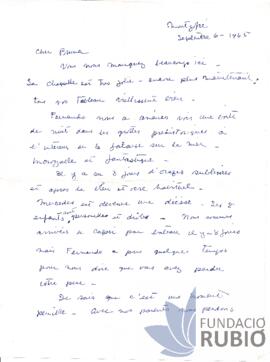 Septembre 6 - 1965
Cher Bruna
Vous nous manquez beaucoup ici -
La chapelle est très jolie - encore plus maintenant
tous vos tableaux
Fernando nous a amener voir une
de nuit dans les grottes préhistoriques à
l'interieur de la falaise sur la mer -
Incroyable et fantastique -
Il y a eu 3 jours d'orages sublimes
et après le bleu et vert habituels -
Mercedes est devenue une déesse - Les
enfants
Nous sommes
arrivés à Capri par bateau il y a 8 jours
mais Fernando a peu quelques temps
pour nous dire que vous avez perdu
votre père -
Je sais que c'est un moment
penible - Avec nos parents nous perdons
FUNDACIÓ
RUBIÓ